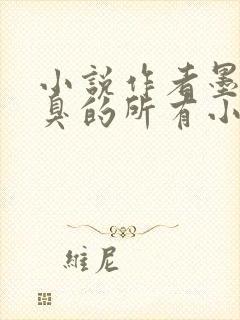 小說作者墨
臭的所有小
維尼